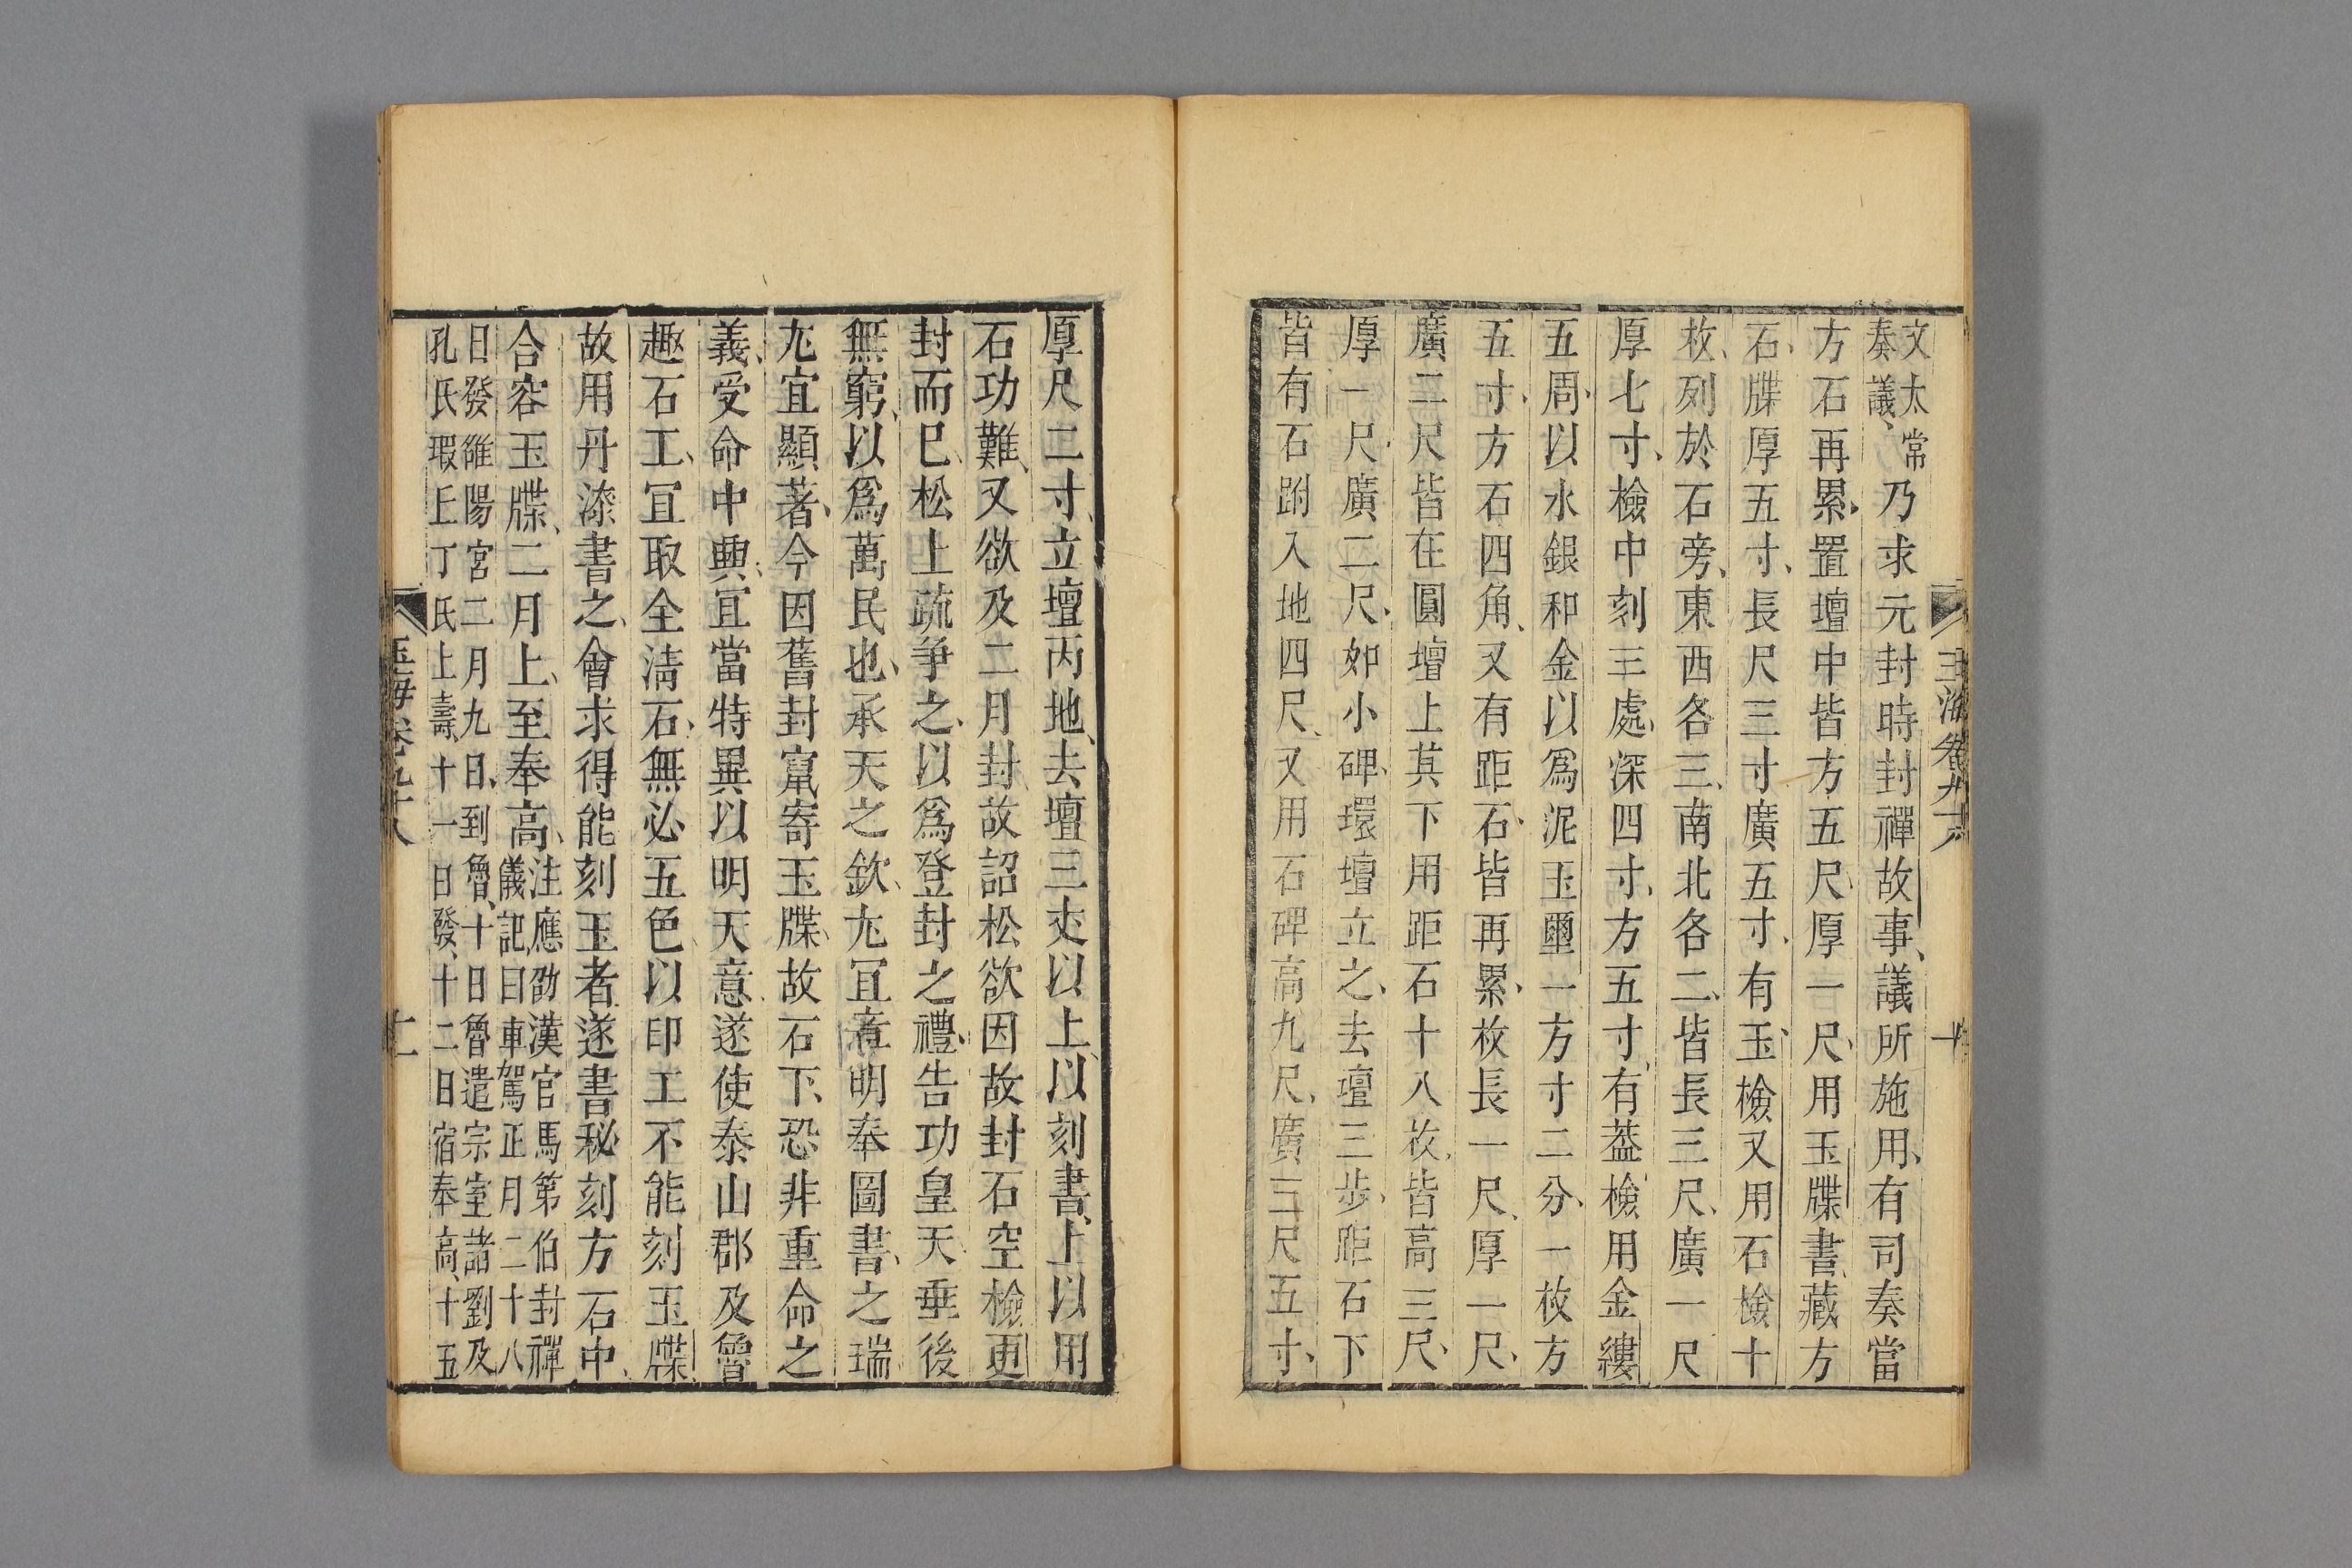 文太常
奏議、乃求元封時封禪故事、議所施用、有司奏當
方石再累、置壇中皆方五尺、厚一尺、用玉牒書、藏方
石、牒厚五寸、長尺三寸廣五寸、有玉、檢又用石檢十
枚、列於石旁、東西各三、南北各二、皆長三尺、廣一尺
厚七寸、檢中刻三處、深四寸、方五寸、有蓋檢用金縷
五周、以水銀和金以爲泥玉璽一方寸二分、一枚方
五寸、方石四角、又有距石、皆再累、枚長一尺、厚一尺、
廣二尺皆在圓壇上其下用距石十八枚、皆高三尺、
厚一尺、廣二尺、如小碑、環壇立之、去壇三步、距石下
皆有石跗入地四尺、又用石碑高九尺、廣三尺五寸、
玉海卷九十八
十
厚尺二寸、立壇丙地、去壇三丈以上、以刻書、上以用
石功難、又欲及二月封、故詔松欲因故封石空檢更
封而已、松上疏爭之、以爲登封之禮、告功皇天垂後
無窮、以爲萬民也、承天之欽、尤宜章明奉圖書、之瑞
尤宜顯著、今因舊封竁寄玉牒、故石下、恐非重命之
義、受命中興、宜當特異以明天意、遂使泰山郡及魯
趣石工、宜取全淸石、無必五色、以印工不能刻玉牒
故用丹漆書之、會求得能刻玉者遂書秘刻方石中、
合容玉牒、二月上、至奉高、注應劭漢官馬第伯封禪
儀記、曰車駕正月二十八
日發雒陽宮二月九日、到魯、十日魯遣宗室諸劉及
孔氏瑕丘丁氏上壽、十一日發、十二日宿奉高、十五
玉海卷九十八
十一